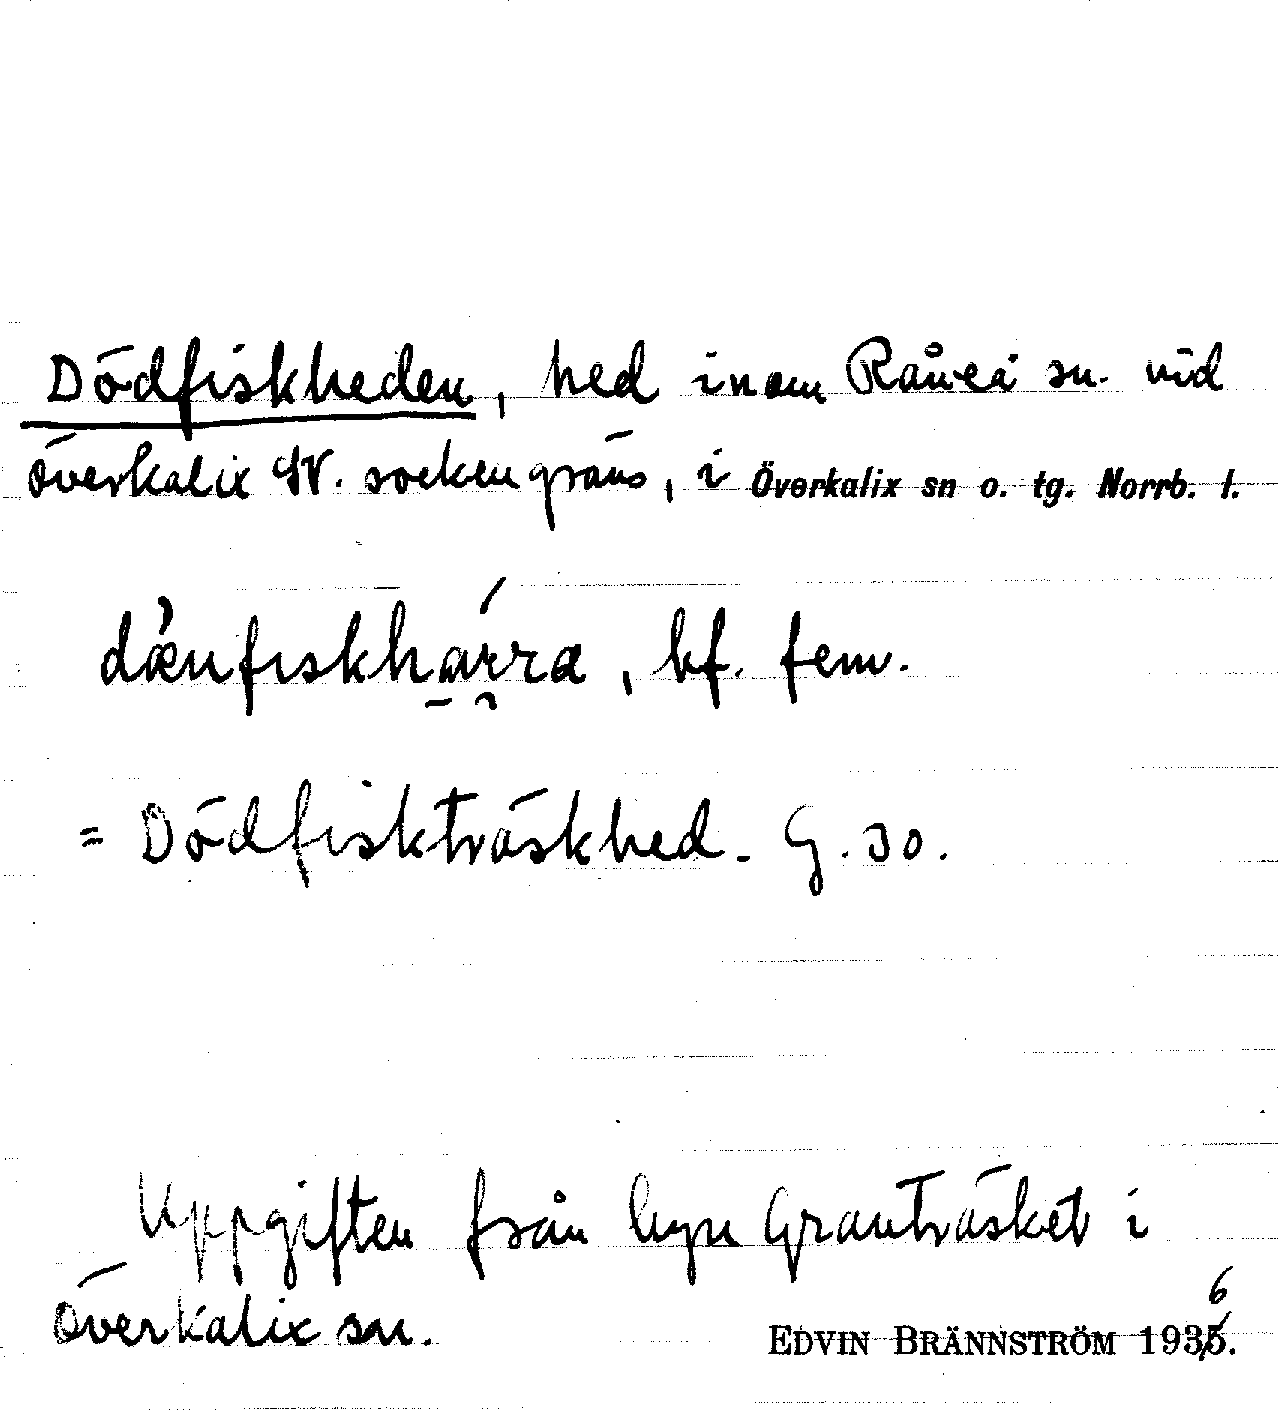 Dödfiskheden, hed inom Råneå sn. vid
Överkalix SV. sockengräns, i Överkalix sn o. tg. Norrb. l.
dǽnfiskhárra, bf. fem.
= Dödfiskträskhed. G. 30.
Uppgiften från byn Granträsket i
Överkalix sn.
EDVIN BRÄNNSTRÖM 1936.